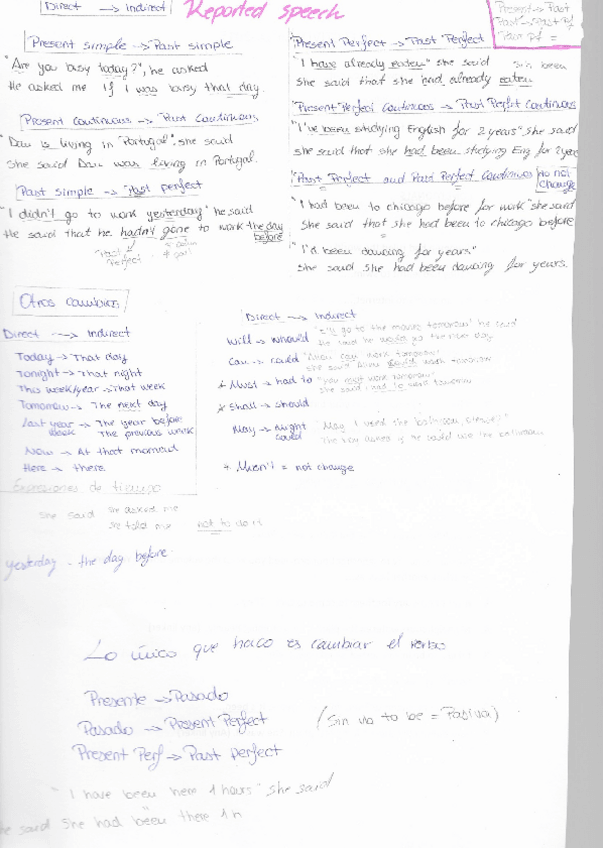 Direct → Indirect
Reported speech
Present → Past
Present simple → Past simple
"Are you busy today?", he asked
He asked me if I was busy that day.
Present continuous → Past Continuous
"Dan is living in Portugal" she said
She said Dan was living in Portugal.
Past simple → Past perfect
"I didn't go to work yesterday" he said
He said that he hadn't gone to work the day before
Past Perfect
Present Perfect → Past Perfect
"I have already eaten" she said
sin been
She said that she had already eaten
Present Perfect Continuous → Past Perfect Continuous
"I've been studying English for 2 years" she said
she said that she had been studying Eng for 2 years
Past Perfect and Past Perfect Continuous do not change
"I had been to chicago before for work" she said
She said that she had been to chicago before
"I'd been dancing for years."
She said she had been dancing for years.
Otros cambios
Direct → Indirect
Today → That day
Tonight → That night
This week/year → That week
Tomorrow → The next day
Last year → The year before
week → The previous week
Now → At that moment
Here → there
Expresiones de tiempo
Direct → Indirect
Will → whould "I'll go to the movies tomorrow" he said
she said he would go the next day
Can → could
* Must → had to
* Shall → should
May → might
could
* Musn't = not change
She said she asked me
she told me not to do it
yesterday - the day before
Lo único que hago es cambiar el verbo
Presente → Pasado
Pasado → Present Perfect
(Sin va to be = Pasiva)
Present Perf → Past perfect
"I have been here 1 hours" she said
She said She had been there 1 h